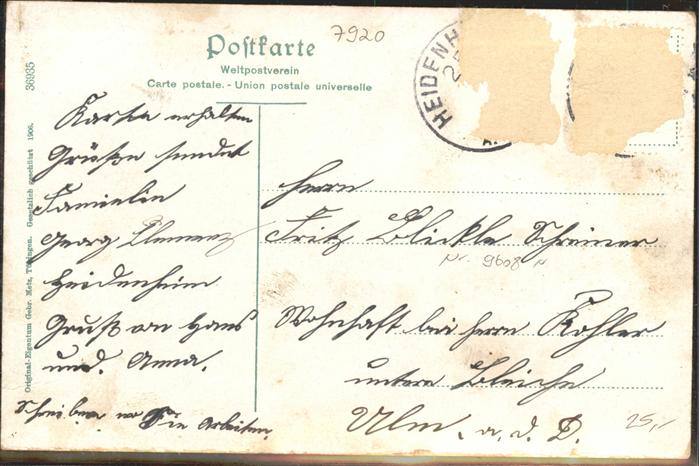 7920
Postkarte
Weltpostverein
Carte postale. - Union postale universelle
HEIDENH
25
36935
Original-Eigentum Gebr. Metz, Tübingen. Gesetzlich geschützt 1906.
Karte erhalten
Grüße sendet
Familie
Georg
Heidenheim
Gruß an Hans
und. Anna.
Schreiben wo Sie Arbeiten.
Herrn
Fritz Blickle Schreiner
Nr. 9608
Wohnhaft bei Herrn Kohler
untere Bleiche
Ulm. a. d. D.
25,-